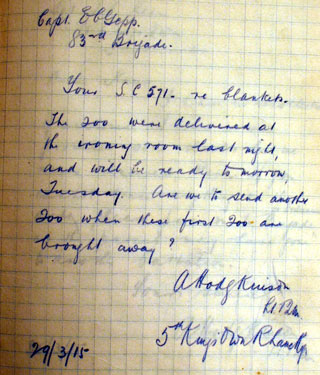 Capt. E C Gepp.
83rd Brigade.
Your S C 571 - re blankets.
The 200 were delivered at
the ironing room last night,
and will be ready to morrow,
Tuesday. Are we to send another
200 when these first 200 are
brought away?
A Hodgkinson
Lt
5th Kings Own R Lanc
29/3/15